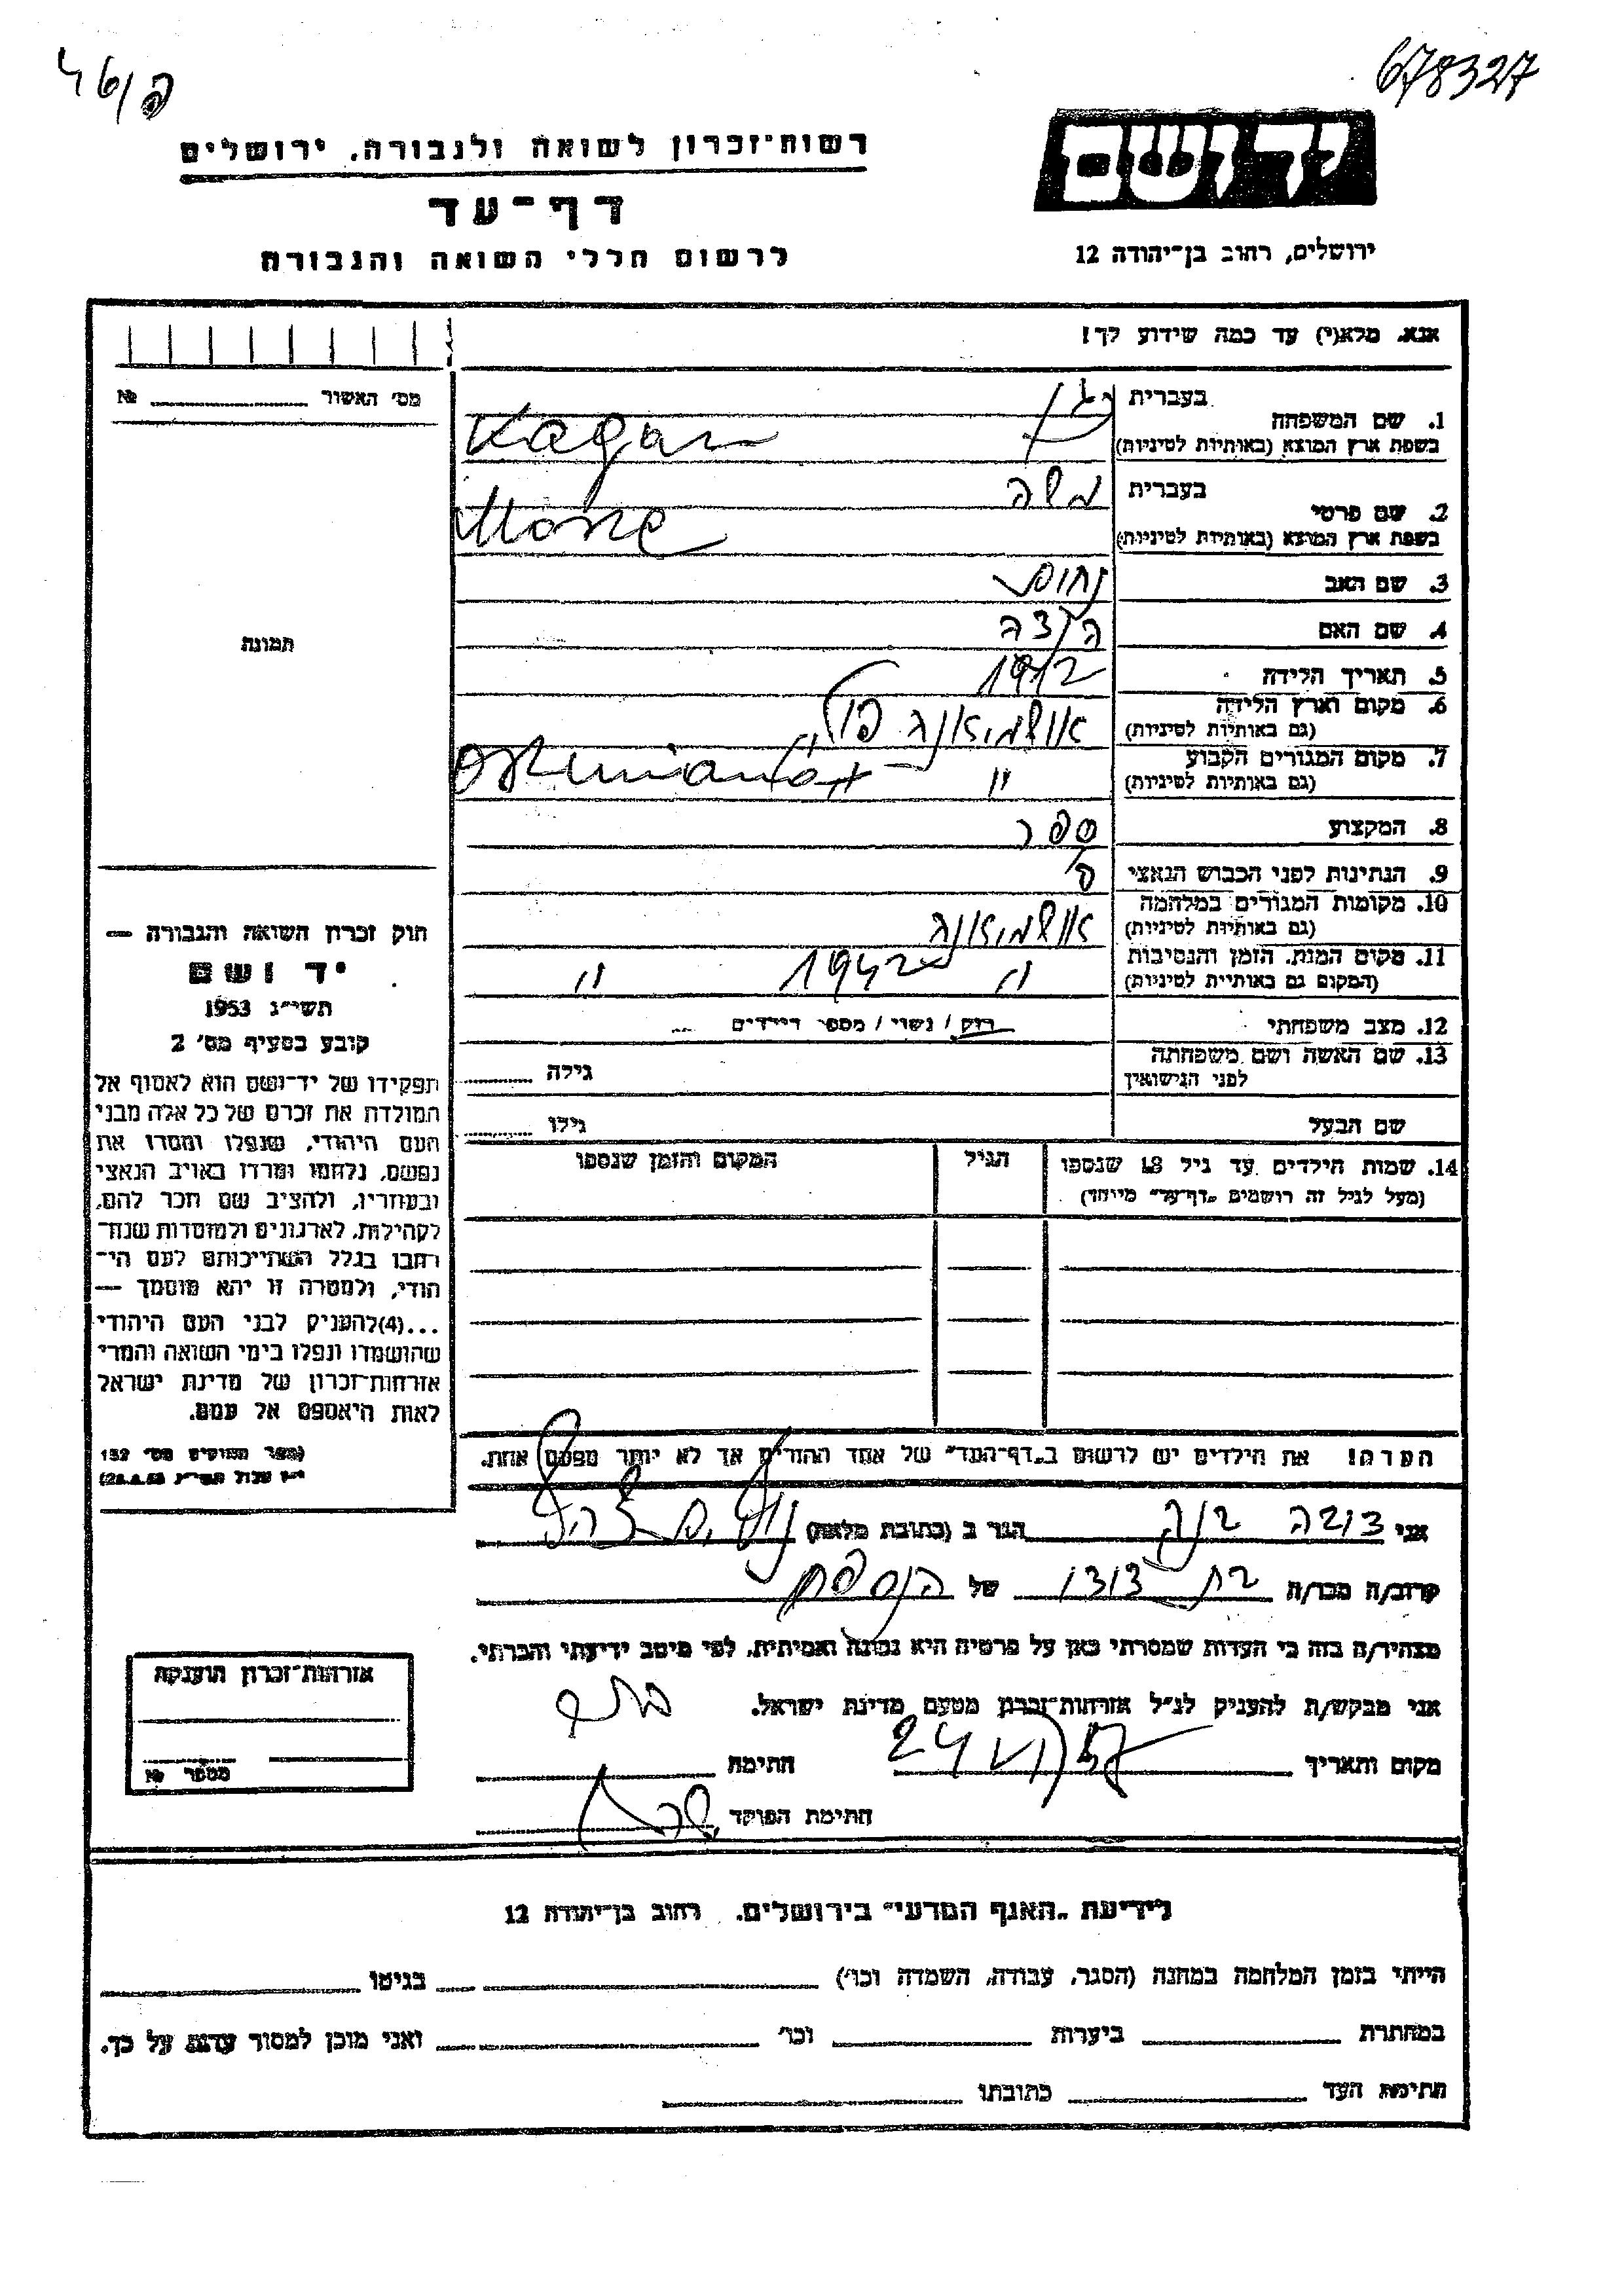 678327
46/פ
יד ושם
רשות־זכרון לשואה ולגבורה, ירושלים
דף־עד
לרשום חללי השואה והגבורה
ירושלים, רחוב בן־יהודה 12
אנא, מלא(י) עד כמה שידוע לך!
מס׳ האשור № 
1. שם המשפחה בעברית
בשפת ארץ המוצא (באותיות לטיניות) Kagan
2. שם פרטי בעברית משה
בשפת ארץ המוצא (באותיות לטיניות) Mosze
3. שם האב נחום
4. שם האם
5. תאריך הלידה 1912
6. מקום וארץ הלידה אושמיאנה פולין
(גם באותיות לטיניות)
7. מקום המגורים הקבוע " Oszmiana
(גם באותיות לטיניות)
8. המקצוע ספר
9. הנתינות לפני הכבוש הנאצי פ׳
10. מקומות המגורים במלחמה אושמיאנה
(גם באותיות לטיניות)
11. מקום המות, הזמן והנסיבות " 1942 "
(המקום גם באותיות לטיניות)
12. מצב משפחתי רוק / נשוי / מספר הילדים
13. שם האשה ושם משפחתה גילה
לפני הנישואין
שם הבעל גילו
14. שמות הילדים עד גיל 18 שנספו הגיל המקום והזמן שנספו
(מעל לגיל זה רושמים „דף־עד״ מיוחד)
תמונה
חוק זכרון השואה והגבורה —
יד ושם
תשי״ג 1953
קובע בסעיף מס׳ 2
תפקידו של יד־ושם הוא לאסוף אל
המולדת את זכרם של כל אלה מבני
העם היהודי, שנפלו ומסרו את
נפשם, נלחמו ומרדו באויב הנאצי
ובעוזריו, ולהציב שם וזכר להם,
לקהילות, לארגונים ולמוסדות שנח־
רבו בגלל השתייכותם לעם הי־
הודי, ולמטרה זו יהא מוסמך —
...(4)להעניק לבני העם היהודי
שהושמדו ונפלו בימי השואה והמרי
אזרחות־זכרון של מדינת ישראל
לאות היאספם אל עמם.
(ספר החוקים מס׳ 132
הערה! את הילדים יש לרשום ב„דף־העד״ של אחד ההורים אך לא יותר מפעם אחת.
אני הגר ב (כתובת מלאה)
קרוב/ה מכר/ה בת דודו של הנספה
מצהיר/ה בזה כי העדות שמסרתי כאן על פרטיה היא נכונה ואמיתית, לפי מיטב ידיעתי והכרתי.
אני מבקש/ת להעניק לנ״ל אזרחות־זכרון מטעם מדינת ישראל.
מקום ותאריך 24/VI/57 חתימה
חתימת הפוקד
אזרחות־זכרון הוענקה
מספר №
לידיעת „האגף המדעי״ בירושלים, רחוב בן־יהודה 12
הייתי בזמן המלחמה במחנה (הסגר, עבודה, השמדה וכו׳) בגיטו
במחתרת ביערות וכו׳ ואני מוכן למסור עדות על כך.
חתימת העד כתובתו